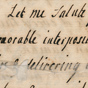 Let me Salute
morable interposi
delivering